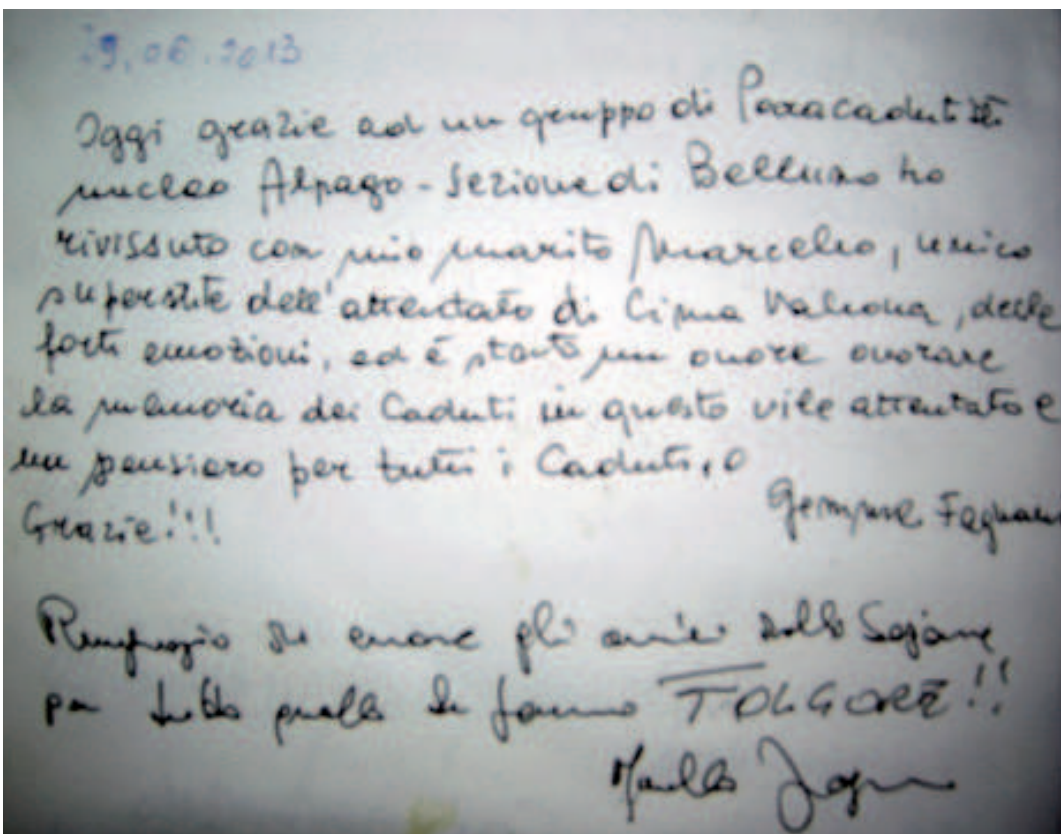 29.06.2013
Oggi grazie ad un gruppo di Paracadutisti
nucleo Alpago - Sezione di Belluno ho
rivissuto con mio marito Marcello, unico
superstite dell'attentato di Cima Vallona, delle
forti emozioni, ed é stato un onore onorare
la memoria dei Caduti in questo vile attentato e
un pensiero per tutti i Caduti.
Grazie!!!
Fagnani
Ringrazio di cuore gli amici della Sezione
per tutto quello che fanno FOLGORE!!
Marcello